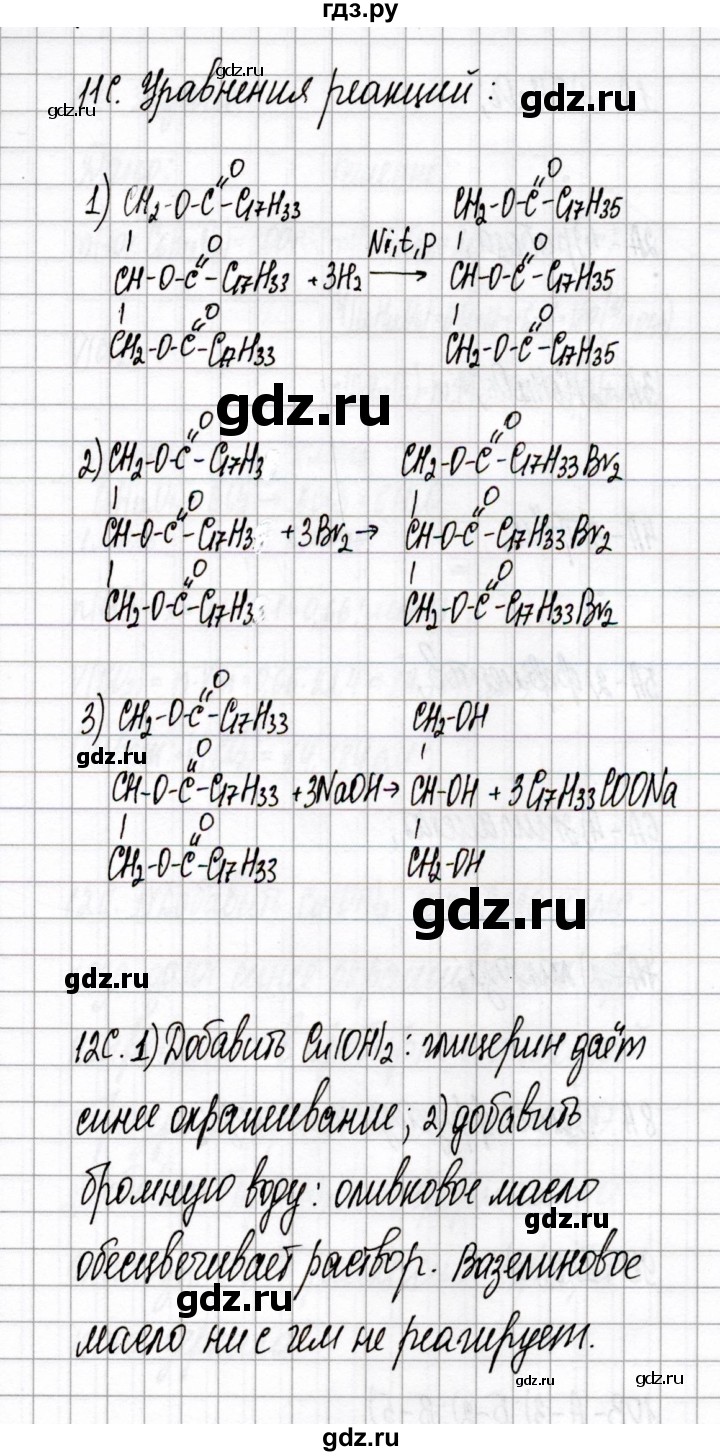 гдз.ру
gdz.ru
11С. Уравнения реакций:
gdz.ru
gdz.ru
O O
1) CH2-O-C-C17H33 CH2-O-C-C17H35
O Ni,t,p O
CH-O-C-C17H33 +3H2 → CH-O-C-C17H35
O O
CH2-O-C-C17H33 CH2-O-C-C17H35
gdz.ru
O O
2) CH2-O-C-C17H3 CH2-O-C-C17H33Br2
O O
CH-O-C-C17H3 +3Br2→ CH-O-C-C17H33Br2
O O
CH2-O-C-C17H3 CH2-O-C-C17H33Br2
O
3) CH2-O-C-C17H33 CH2-OH
gdz.ru
O
CH-O-C-C17H33 +3NaOH→ CH-OH + 3C17H33COONa
O
CH2-O-C-C17H33 CH2-OH
gdz.ru
gdz.ru
12С. 1) Добавить Cu(OH)2: глицерин даёт
синее окрашивание; 2) добавить
бромную воду: оливковое масло
gdz.ru
обесцвечивает раствор. Вазелиновое
gdz.ru
масло ни с чем не реагирует.
gdz.ru
gdz.ru
гдз.ру